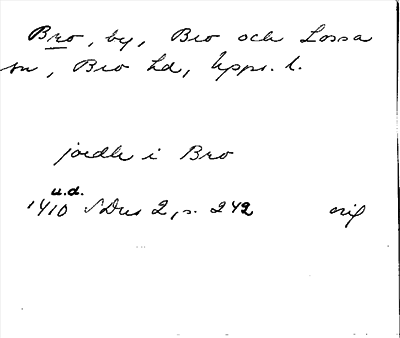 Bro, by, Bro och Lossa
sn, Bro hd, Upps. l.
jordh i Bro
u.d.
1410 SDns 2, s. 242 orig